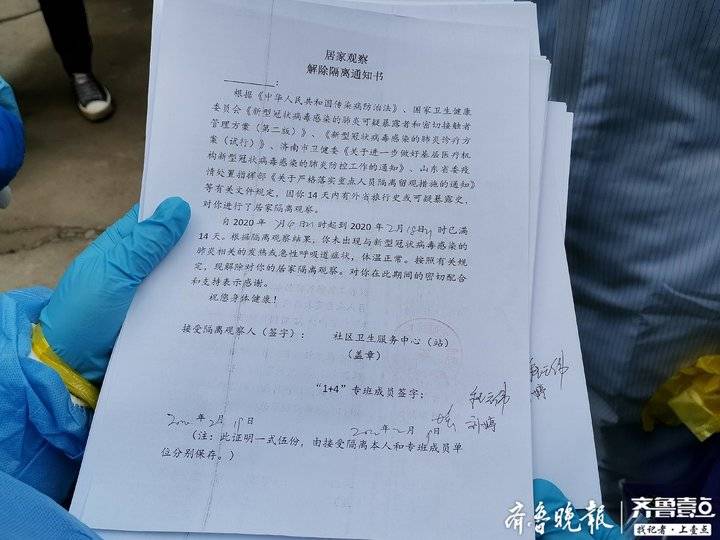 居家观察
解除隔离通知书
：
根据《中华人民共和国传染病防治法》、国家卫生健康
委员会《新型冠状病毒感染的肺炎可疑暴露者和密切接触者
管理方案（第二版）》、《新型冠状病毒感染的肺炎诊疗方
案（试行）》、济南市卫健委《关于进一步做好基层医疗机
构新型冠状病毒感染的肺炎防控工作的通知》、山东省委疫
情处置指挥部《关于严格落实重点人员隔离留观措施的通知》
等有关文件规定，因你14天内有外出旅行史或可疑暴露史，
对你进行了居家隔离观察。
自2020年 月 日 时起到2020年2月18日 时已满
14天。根据隔离观察结果，你未出现与新型冠状病毒感染的
肺炎相关的发热或急性呼吸道症状，体温正常。按照有关规
定，现解除对你的居家隔离观察。对你在此期间的密切配合
和支持表示感谢。
祝您身体健康！
接受隔离观察人（签字）： 社区卫生服务中心（站）
（盖章）
“1+4”专班成员签字：
刘婷
年2月 日 年2月 日
（注：此证明一式伍份，由接受隔离本人和专班成员单
位分别保存。）
齐鲁晚报
齐鲁壹点
找记者·上壹点